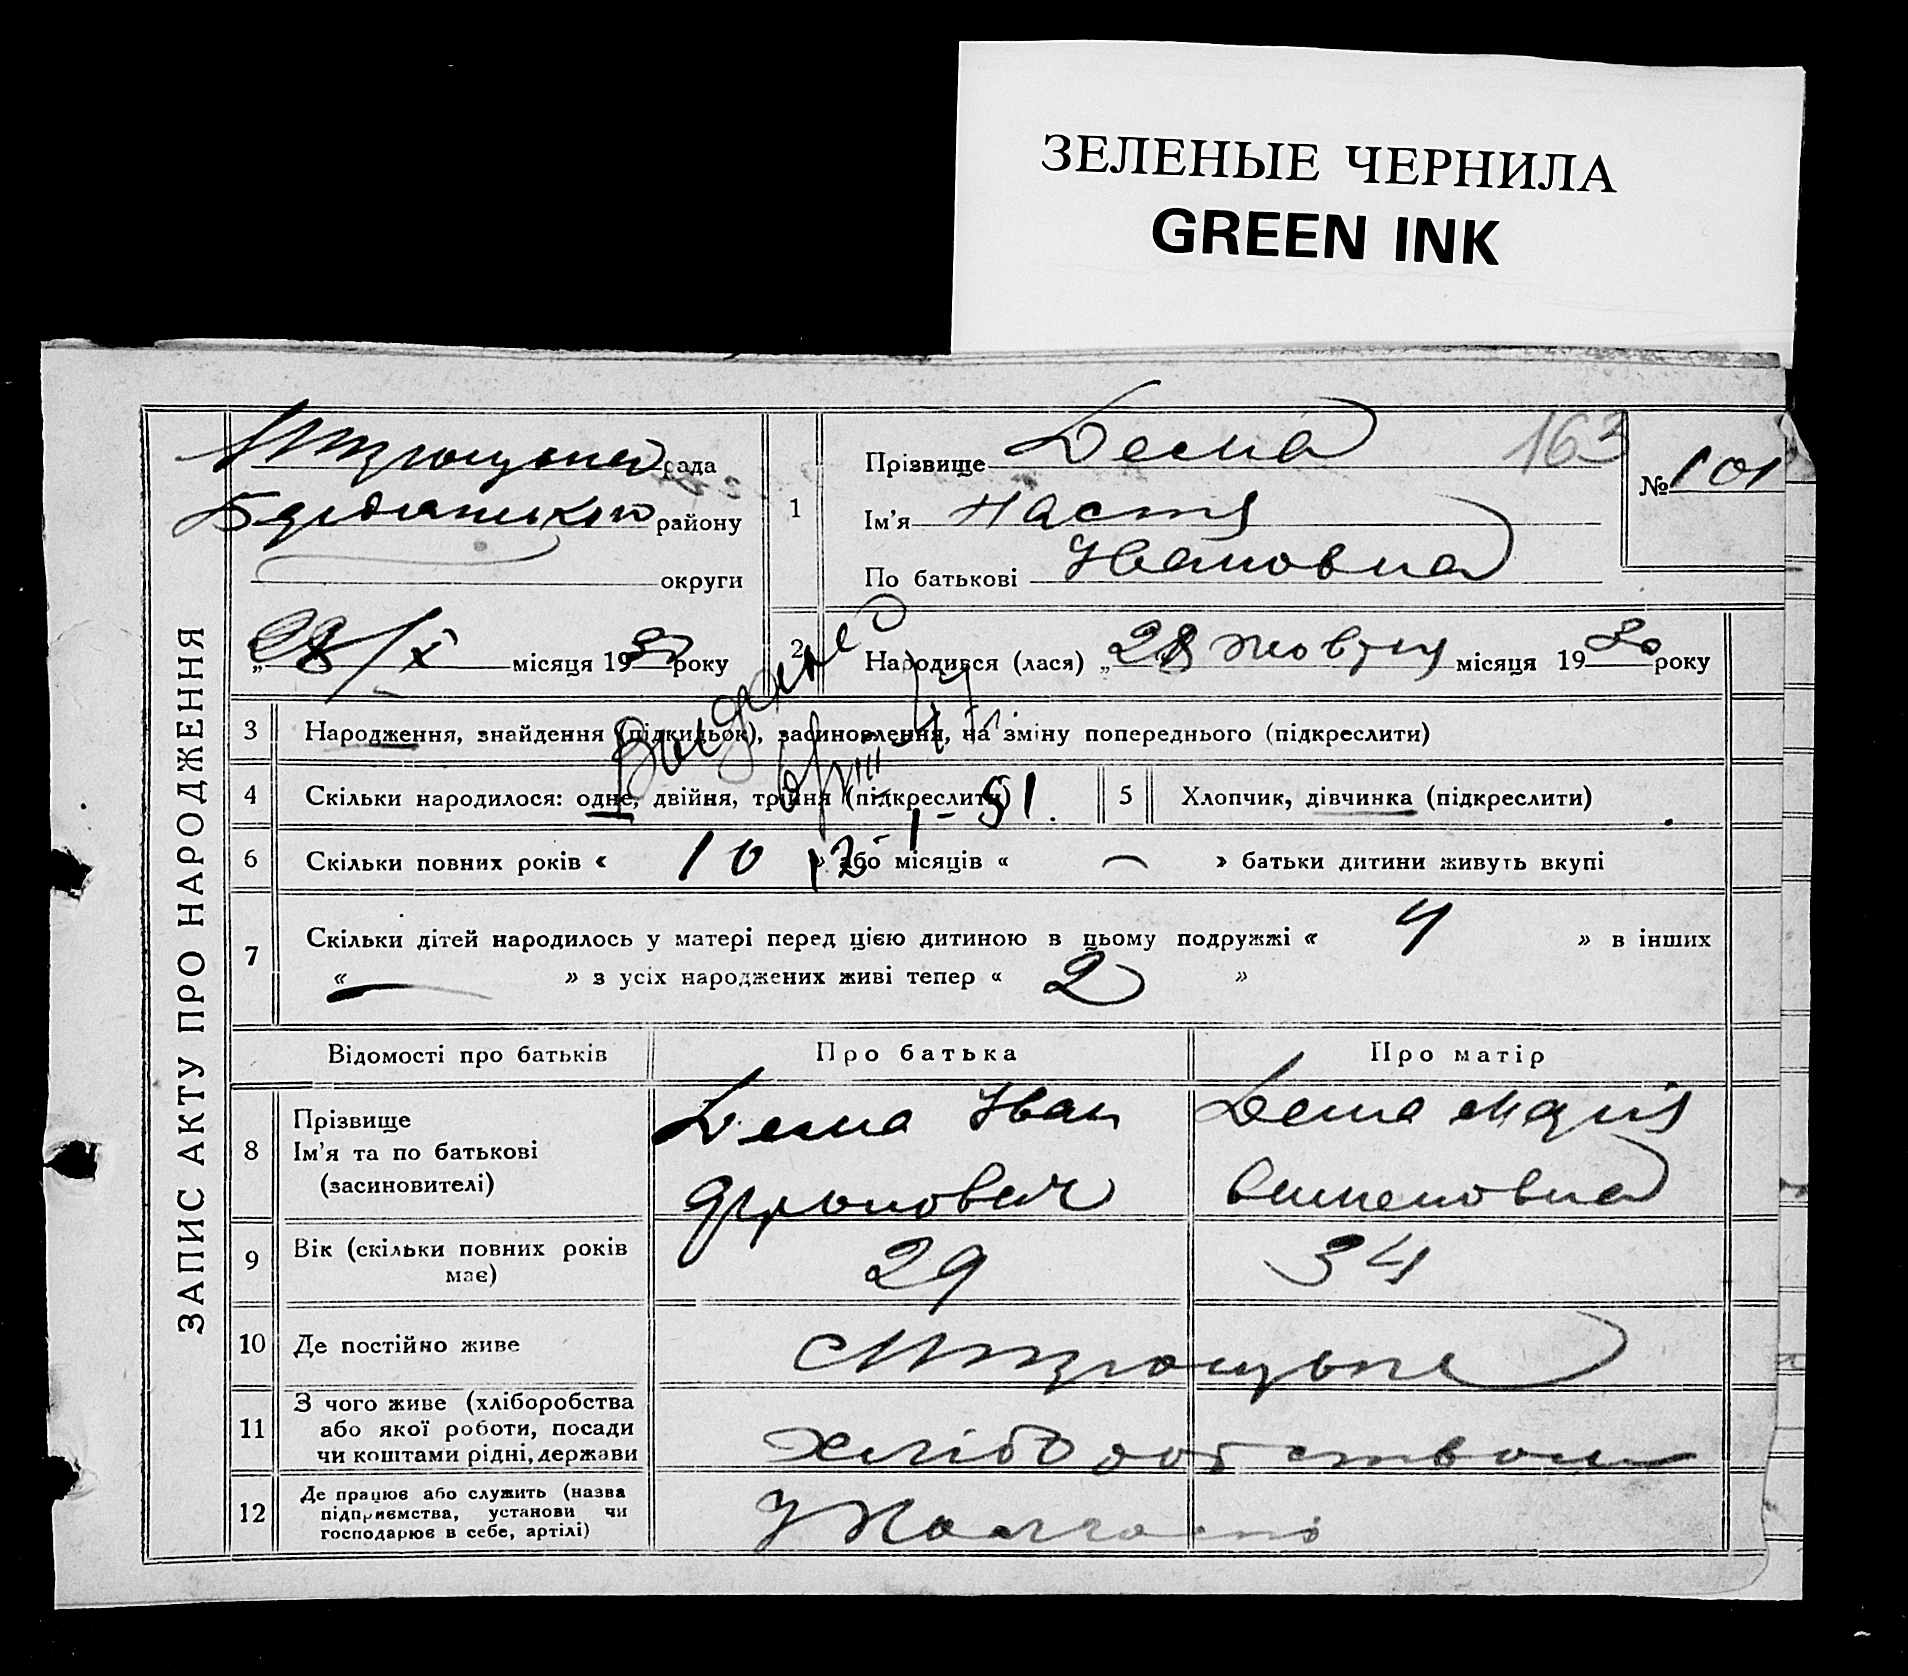 ЗЕЛЕНЫЕ ЧЕРНИЛА
GREEN INK
ЗАПИС АКТУ ПРО НАРОДЖЕННЯ
рада
району
округи
„28/X місяця 1930 року
163
№ 101
1
Прізвище Дема
Ім’я Настя
По батькові Ивановна
2
Народився (лася) „28 жовтня місяця 1930 року
3 Народження, знайдення (підкидьок), засиновлення, на зміну попереднього (підкреслити)
4 Скільки народилося: одне, двійня, трійня (підкреслити)
5 Хлопчик, дівчинка (підкреслити)
6 Скільки повних років « 10 » або місяців « — » батьки дитини живуть вкупі
7 Скільки дітей народилось у матері перед цією дитиною в цьому подружжі « 4 » в інших
« — » з усіх народжених живі тепер « 2 »
Відомості про батьків Про батька Про матір
8 Прізвище
Ім’я та по батькові
(засиновителі)
Дема Иван
Дема Мария
9 Вік (скільки повних років
має)
29 34
10 Де постійно живе
11 З чого живе (хліборобства
або якої роботи, посади
чи коштами рідні, держави
хліборобством
12 Де працює або служить (назва
підприємства, установи чи
господарює в себе, артілі)